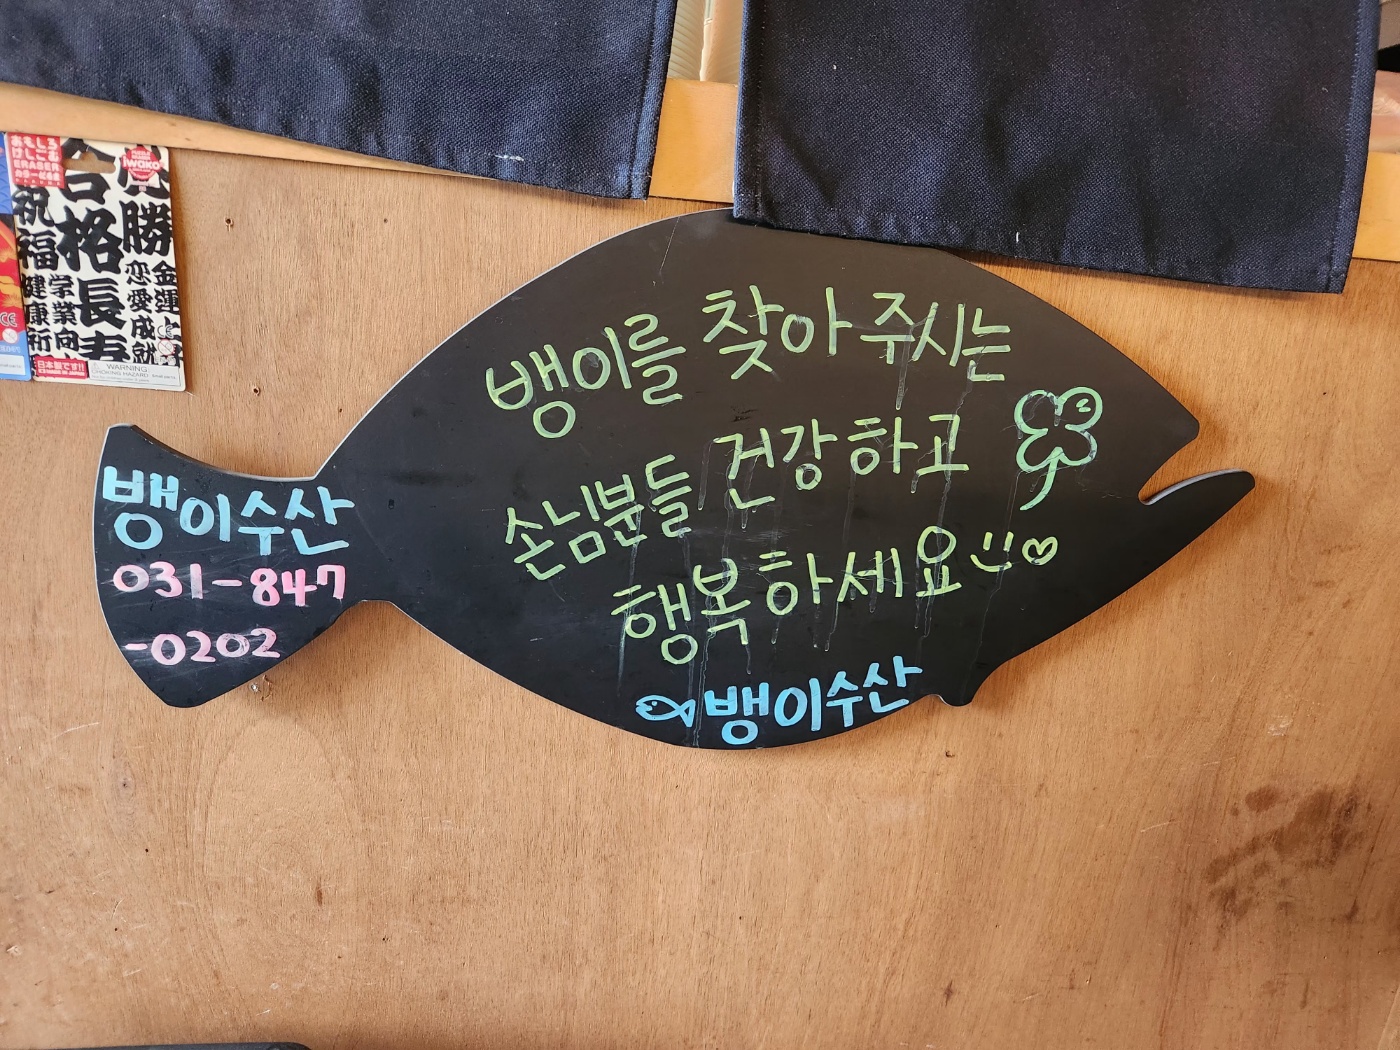 뱅이를 찾아 주시는
손님분들 건강하고
행복하세요
뱅이수산
뱅이수산
031-847
-0202
おもしろ
けしごむ
ERASER
iwako
祝福
合格
長寿
必勝
健康祈
学業向
恋愛成就
金運上
日本製です!!
WARNING
CHOKING HAZARD!
CE